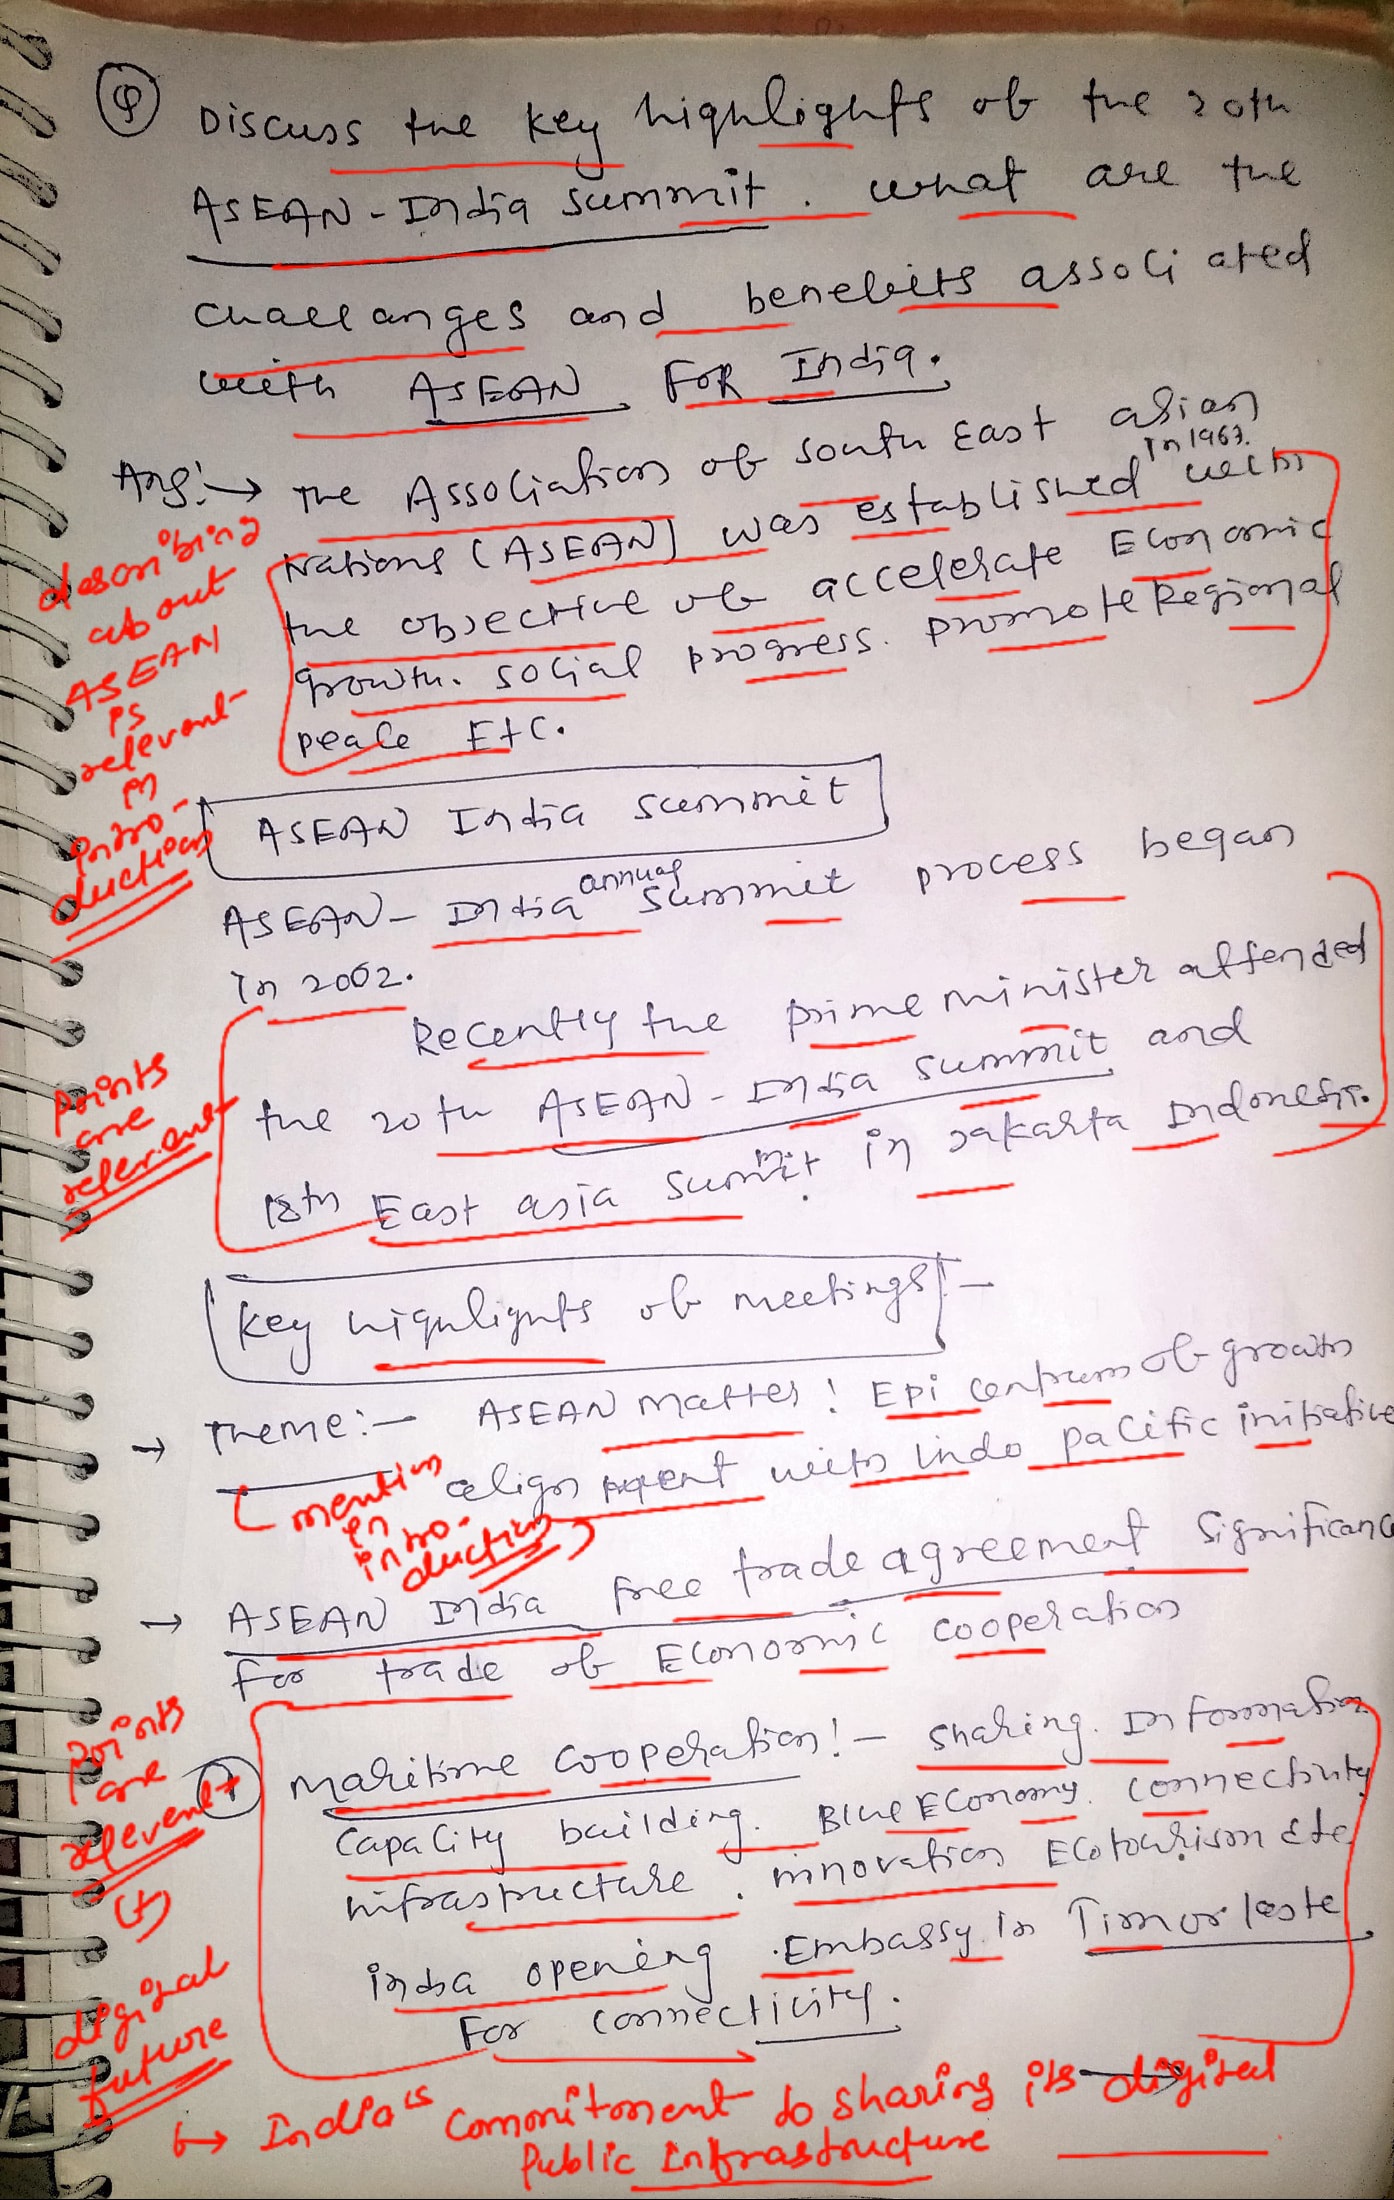 Q Discuss the key highlights of the 20th
ASEAN - India summit. what are the
challanges and benefits associated
with ASEAN FOR India.
Ans:→ The Association of south East asian
in 1967.
Nations (ASEAN) was established with
the objective of accelerate Economic
growth. social progress. promote Regional
peace Etc.
describing
about
ASEAN
is
relevant
in
intro-
duction
ASEAN India summit
ASEAN - India annual summit process began
in 2002.
Recently the prime minister attended
the 20th ASEAN - India summit and
18th East asia summit in Jakarta Indonesia.
points
are
relevant
Key highlights of meetings! -
→ Theme:- ASEAN Matter! Epi centrum of growth
align with indo pacific initiative
(mention
in
intro-
duction)
→ ASEAN India free trade agreement significance
for trade of Economic cooperation
Points
are
relevent
(+)
digital
future
Maritime cooperation! - sharing. Information
capacity building. Blue Economy. connectivity
infrastructure. innovation Ecotourism etc
india opening Embassy in Timor leste
For connectivity.
↳ India's commitment to sharing its digital
Public Infrastructure